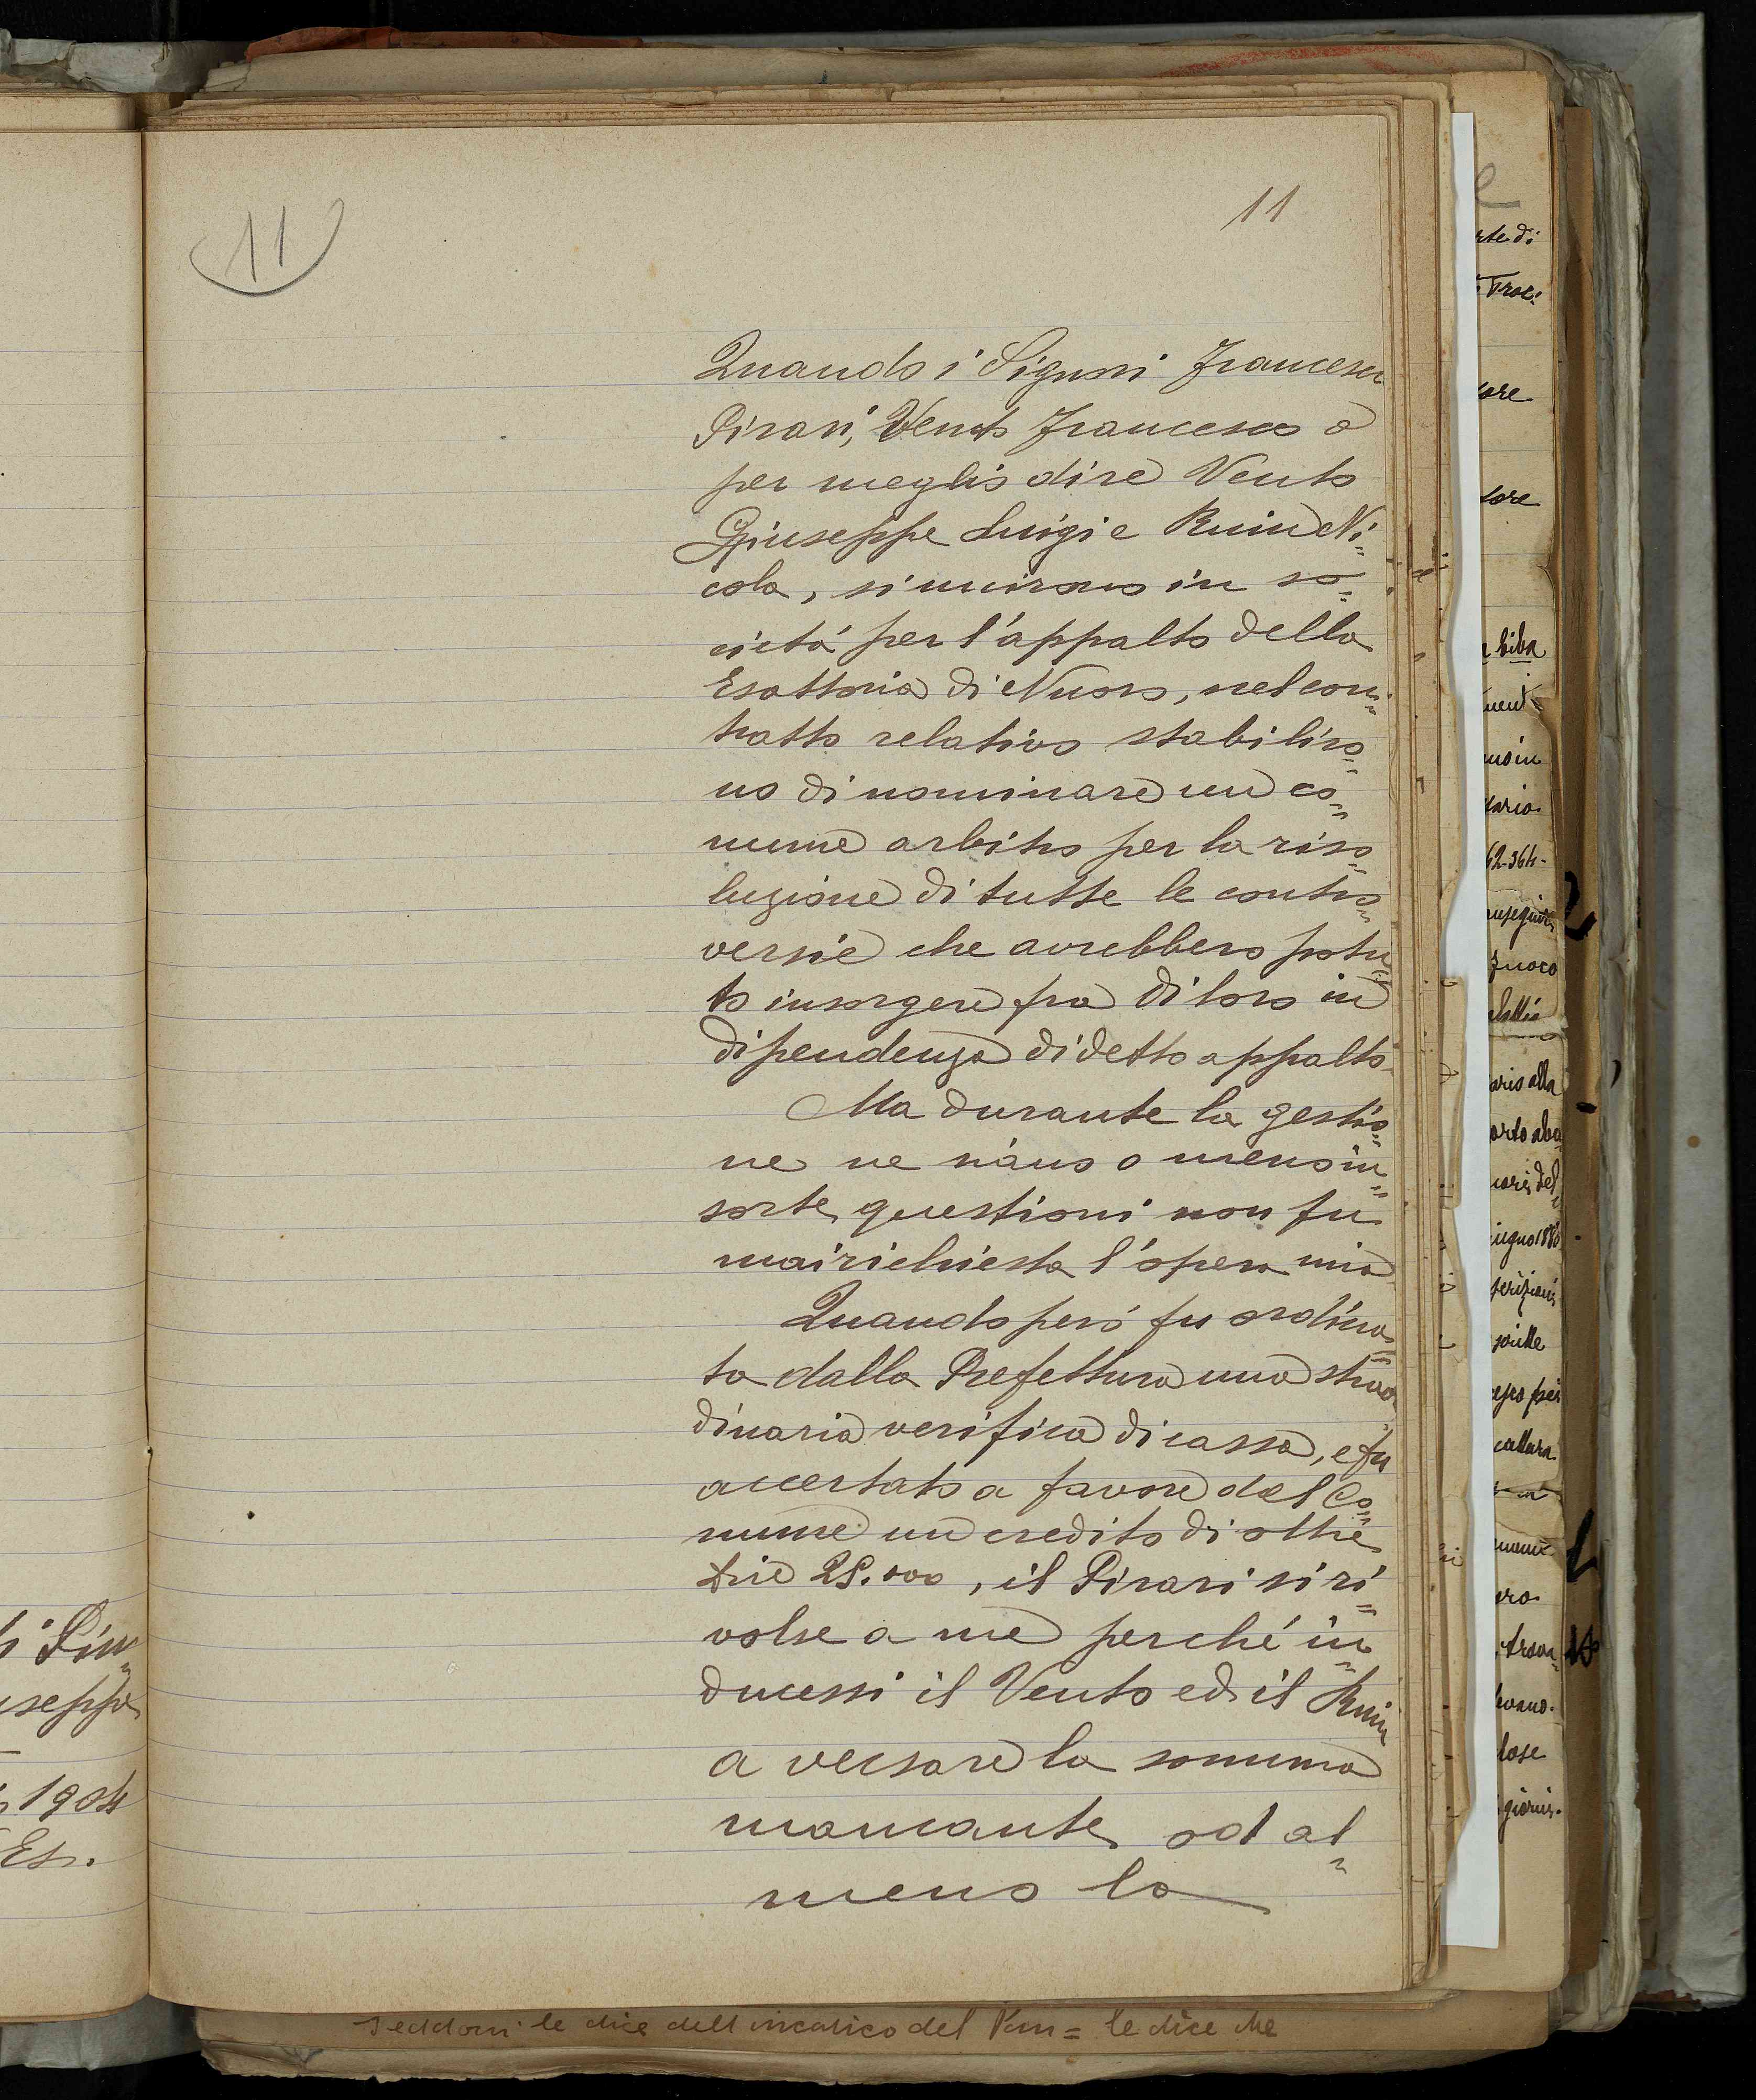 11
11
Quando i Signori Francesco
Pirari, Vento Francesco o
per meglio dire Vento
Giuseppe Luigi e Ruiu Ni=
cola, si unirono in so=
cietá per l'appalto della
Esattoria di Nuoro, nel con=
tratto relativo stabiliro=
no di nominare un co=
mune arbitro per la riso=
luzione di tutte le contro=
versie che avrebbero potu=
to insorgere fra di loro in
dipendenza di detto appalto.
Ma durante la gestio=
ne ne siano o meno in=
sorte questioni non fu
mai richiesta l'opera mia
Quando peró fu ordina=
ta dalla Prefettura una straor
dinaria verifica di cassa, e fu
accertato a favore del Co=
mune un credito di oltre
lire 25.000, il Pirari si ri=
volse a me perché in=
ducessi il Vento ed il Ruiu
a versare la somma
mancante od al=
meno la
rte di
tore
tore
tario
62-364-
Fuoco
orto
pritte
trova=
vano.
lose
giorni.
useppe
1904
le dice dell incarico del = le dice che